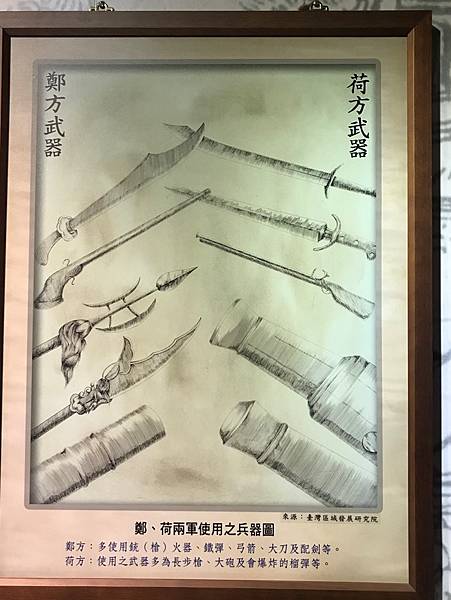 鄭方武器
荷方武器
來源：臺灣區域發展研究院
鄭、荷兩軍使用之兵器圖
鄭方：多使用銃（槍）火器、鐵彈、弓箭、大刀及配劍等。
荷方：使用之武器多為長步槍、大砲及會爆炸的榴彈等。